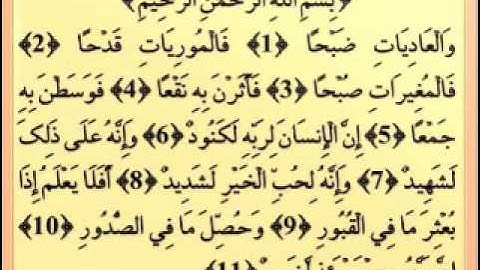 ﴿بِسْمِ اللهِ الرَّحْمَنِ الرَّحِيْمِ﴾
وَالْعَادِيَاتِ ضَبْحًا ﴿1﴾ فَالْمُورِيَاتِ قَدْحًا ﴿2﴾
فَالْمُغِيرَاتِ صُبْحًا ﴿3﴾ فَأَثَرْنَ بِهِ نَقْعًا ﴿4﴾ فَوَسَطْنَ بِهِ
جَمْعًا ﴿5﴾ إِنَّ الْإِنسَانَ لِرَبِّهِ لَكَنُودٌ ﴿6﴾ وَإِنَّهُ عَلَى ذَلِكَ
لَشَهِيدٌ ﴿7﴾ وَإِنَّهُ لِحُبِّ الْخَيْرِ لَشَدِيدٌ ﴿8﴾ أَفَلَا يَعْلَمُ إِذَا
بُعْثِرَ مَا فِي الْقُبُورِ ﴿9﴾ وَحُصِّلَ مَا فِي الصُّدُورِ ﴿10﴾
﴿11﴾